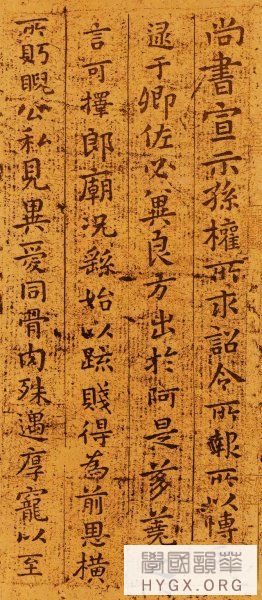 尚書宣示孫權所求詔令所報所以博
逮于卿佐必冀良方出於阿是芻蕘
言可擇郎廟況繇始以疏賤得為前恩橫
所眄睨公私見異愛同骨肉殊遇厚寵以至
學國韻華
HYGX.ORG